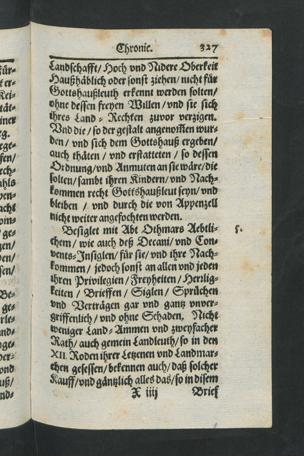 Chronic. 327
Landschafft / Hoch vnd Nidere Oberkeit
Haußhäblich oder sonst ziehen / nicht für
Gottshaußleuth erkennt werden solten /
ohne dessen freyen Willen / vnd sie sich
ihres Land-Rechten zuvor verzigen.
Vnd die / so der gestalt angenom̃en wur-
den / vnd sich dem Gottshauß ergeben /
auch thäten / vnd erstatteten / so dessen
Ordnung / vnd Anmuten an sie wäre / die
solten / sambt ihren Kindern / vnd Nach-
kommen recht Gottshaußleut seyn / vnd
bleiben / vnd durch die von Appenzell
nicht weiter angefochten werden.
Besiglet mit Abt Othmars Aebtli- 5.
chem / wie auch deß Decani / vnd Con-
vents-Insiglen / für sie / vnd ihre Nach-
kommen / jedoch sonst an allen vnd jeden
ihren Privilegien / Freyheiten / Herrlig-
keiten / Brieffen / Siglen / Sprüchen
vnd Verträgen gar vnd gantz vnver-
griffenlich / vnd ohne Schaden. Nicht
weniger Land-Ammen vnd zweyfacher
Rath / auch gemein Landleuth / so in den
XII. Roden ihrer Letzenen vnd Landmar-
chen gesessen / bekennen auch / daß solcher
Kauff / vnd gäntzlich alles das / so in disem
X iiij Brief